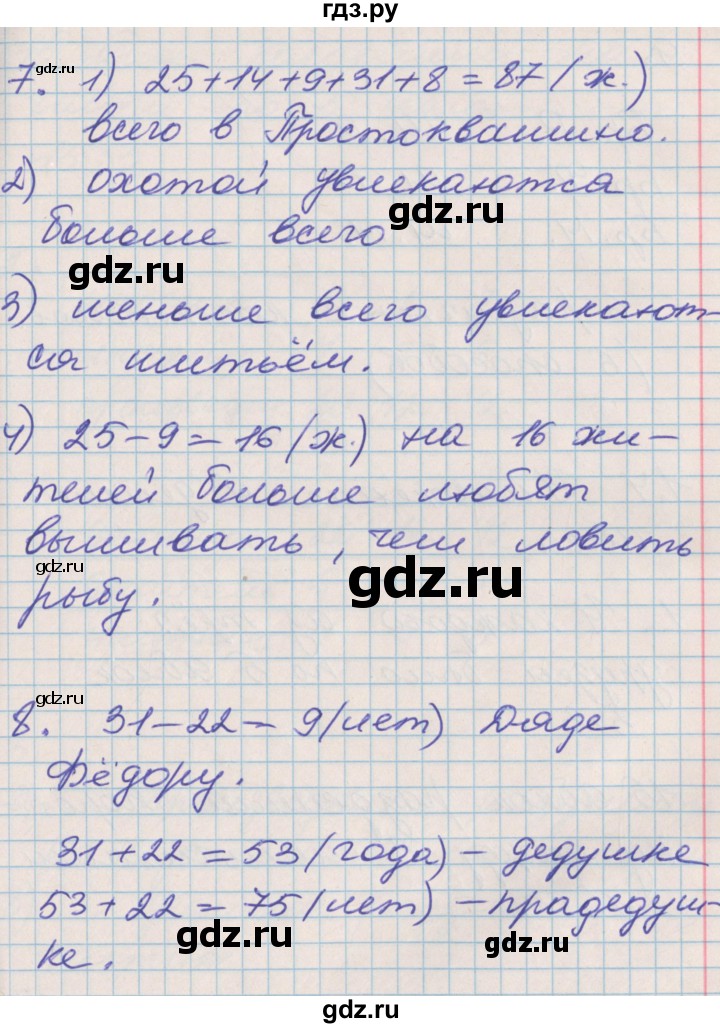 гдз.ру
7. 1) 25+14+9+31+8=87 (ж.)
всего в Простоквашино.
2) охотой увлекаются
больше всего
3) меньше всего увлекают-
ся шитьём.
4) 25-9=16 (ж.) на 16 жи-
телей больше любят
вышивать, чем ловить
рыбу.
8. 31-22=9 (лет) Дяде
Фёдору.
31+22=53 (года) - дедушке
53+22=75 (лет) - прадедуш-
ке.
gdz.ru
gdz.ru
gdz.ru
gdz.ru
gdz.ru
gdz.ru
gdz.ru
gdz.ru
gdz.ru